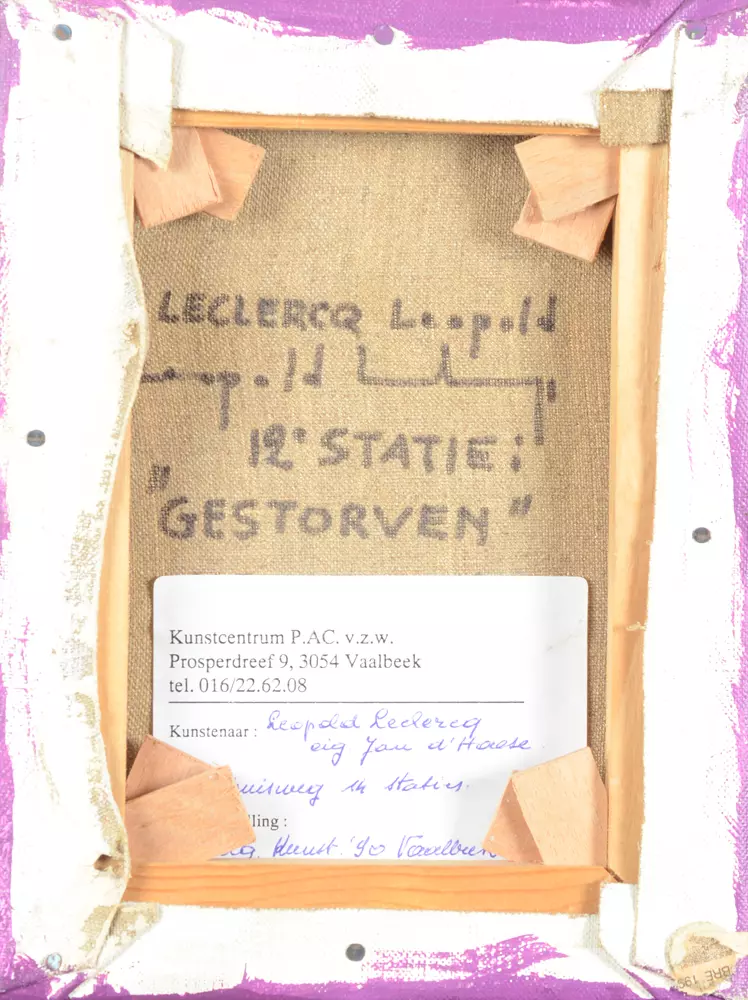 LECLERCQ Leopold
12e STATIE:
"GESTORVEN"
Kunstcentrum P.AC. v.z.w.
Prosperdreef 9, 3054 Vaalbeek
tel. 016/22.62.08
Kunstenaar : Leopold Leclercq
eig Jan d'Haese
uisweg in staties.
lling :
Kunst '90 Vaalbeek
BRE 199